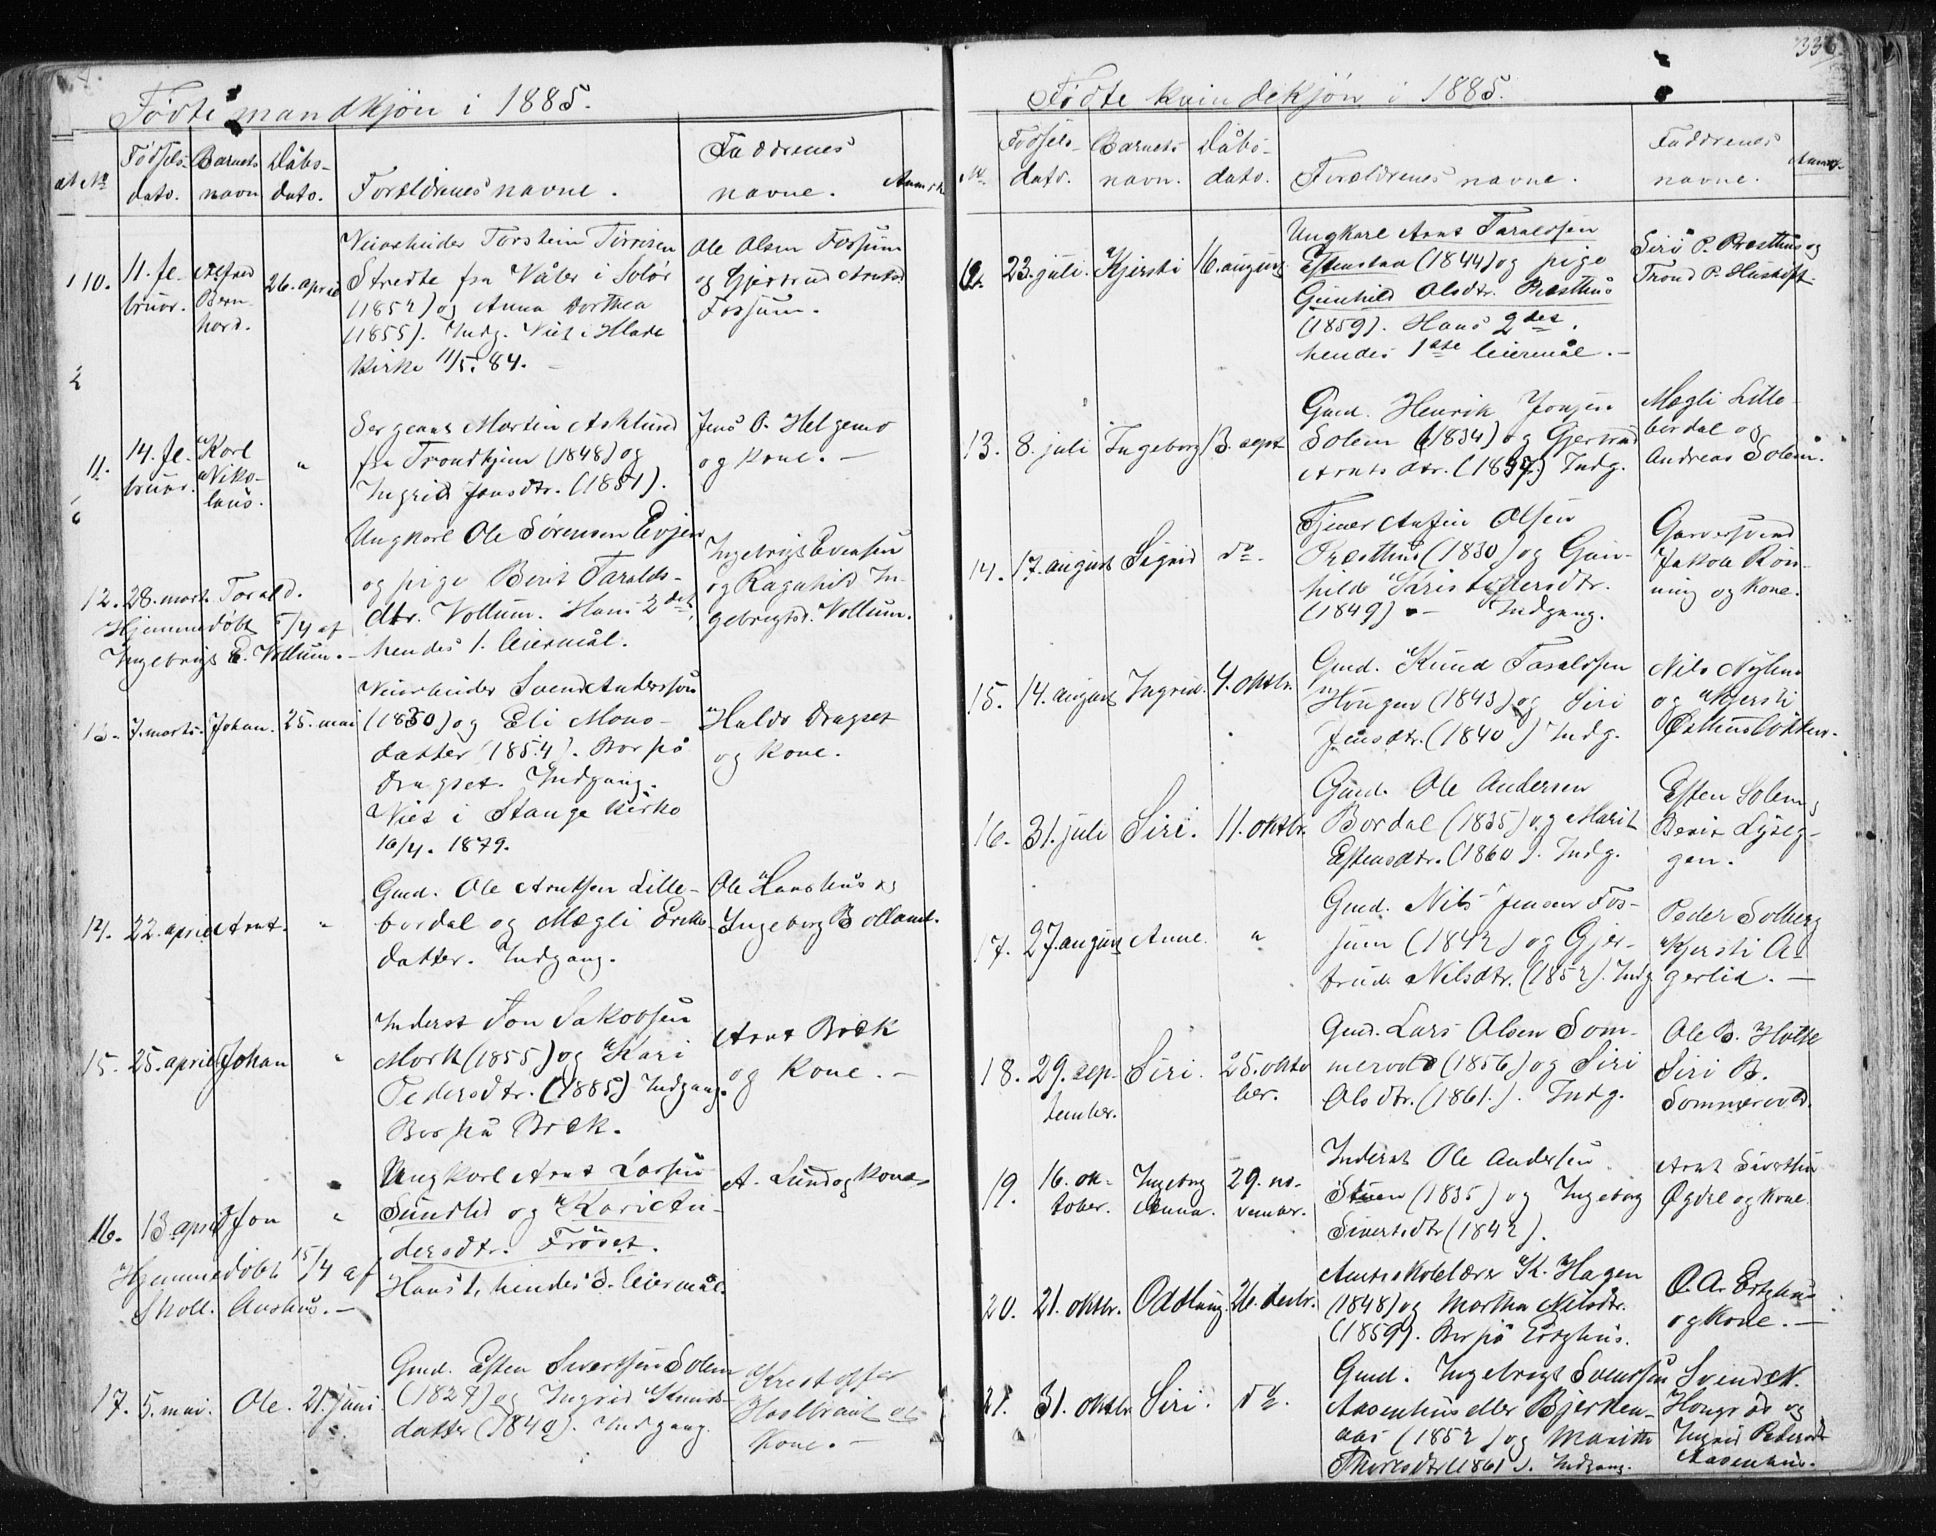 Fødte mandkjøn i 1885.
No
Fødsels-
dato.
Barnets
navn
Dåbs-
dato.
Forældrenes navne.
Faddrenes
navne.
Anmrk
10.
11. fe-
bruar.
Alfred
Bern-
hard.
26. april
Veiarbeider Torstein
Stredte fra Våler i Solør
(1852) og Anna Dorthea
(1855). Indg. Viet i
Kirke 11/5. 84. –
Ole Olsen Fossum
og Gjertrud Arntsd
Fossum.
11.
14. fe-
bruar.
Karl
Niko-
laus.
"
Sergeant Martin Asklund
fra Trondhjem (1848) og
Ingrid Jonsdtr. (1851).
Jens O. Helgemo
og Kone. –
12.
28. marts
Torald.
Hjemmedøbt 5/4 af
Ingebrigt E. Vollum. –
Ungkarl Ole Sørensen Evjen
og pige Berit Taralds-
dtr. Vollum. Hans 2det,
hendes 1. leiermål.
Ingebrigt Evensen
og Ragnhild In-
gebrigtsd. Vollum.
13.
7. marts.
Johan.
25. mai
Veiarbeider Svend Andersson
(1850) og Eli Mons-
datter (1854). Bor på
Dragset. Indgang.
Viet i Stange Kirke
16/4. 1879.
Haldo Dragset
og Kone.
14.
22. april
Arnt.
"
Gmd. Ole Arntsen Lille-
bordal og Mægli Eriks-
datter. Indgang.
Ole Hanshus og
Ingeborg Bolland.
15.
25. april
Johan
"
Inderst Jon Jakobsen
Mork (1855) og Kari
Pedersdtr. (1885) Indgang.
Bor på Bræk.
Arnt Bræk
og Kone. –
16.
13 april
Jon
"
Hjemmedøbt 15/4 af
Skoll. Aushus. –
Ungkarl Arnt Larsen
Sundlid og Kari An-
dersdtr. Frøset.
Hans 1, hendes 3. leiermål.
A. Lund og Kone
17.
5. mai.
Ole.
21. juni.
Gmd. Esten Sivertsen Solem
(1827) og Ingrid Knuds-
datter (1840). Indgang.
Kristoffer
og
Kone. –
336.
Fødte kvindekjøn i 1885.
No.
Fødsels-
dato.
Barnets
navn.
Dåbs-
dato.
Forældrenes navne.
Faddrenes
navne.
Anmrk.
12.
23. juli.
Kjersti
16. august
Ungkarl Arnt Taraldsen
Estenstad (1844) og pige
Gunhild Olsdtr. Præsthus
(1859). Hans 2det,
hendes 1ste leiermål. –
Siri P. Præsthus og
Trond P. Hustøft
13.
8. juli
Ingeborg
13. sept
Gmd. Henrik Jonsen
Solem (1834) og Gjertrud
Arntsdtr. (1857) Indg.
Mægli Lille-
bordal og
Andreas Solem.
14.
17. august
Sigrid
do.
Tjener Anfin Olsen
Præsthus (1830) og Gun-
hild Kristofersdtr.
(1849) – Indgang.
Garversvend
Jakob Røn-
ning og Kone.
15.
14. august
Ingrid.
4. oktbr.
Gmd. Knud Taraldsen
Haugen (1843) og Siri
Jensdtr. (1840) Indg.
Nils Nyhus
og Kjersti
16.
31. juli
Siri.
11. oktbr.
Gmd. Ole Andersen
Bordal (1835) og Marit
Estensdtr. (1860). Indg.
Esten Solem,
Berit Lyseg-
gen.
17.
27. august
Anne.
"
Gmd. Nils Jensen Fos-
sum (1842) og Gjer-
trud Nilsdtr. (1852). Indg
Peder Solberg
Kjersti A-
gerlid. –
18.
29. sep-
tember.
Siri.
25. okto
ber.
Gmd. Lars Olsen Som-
mervold (1856) og Siri
Olsdtr. (1861.). Indg.
Ole B. Holte
Siri B.
Sommervold.
19.
16. ok-
tober.
Ingeborg
Anna.
29. no-
vember.
Inderst Ole Andersen
Stuen (1835) og Ingeborg
Sivertsdtr (1842).
Arnt Sivertsen
Øgdal og Kone
20.
21. oktbr.
Oddlaug.
26. decbr.
Amtsskolelærer K. Hagen
(1848) og Martha Nilsdtr.
(1859). Bor på Ertzhus.
O. A. Ertzhus
og Kone. –
21.
31. oktbr
Siri.
do.
Gmd. Ingebrigt Svendsen
Aasenhus eller Bjerken-
aas (1852) og Marith
Thoresdtr (1861). Indgang.
Svend N.
og
Ingrid Pedersdtr
Aasenhus.